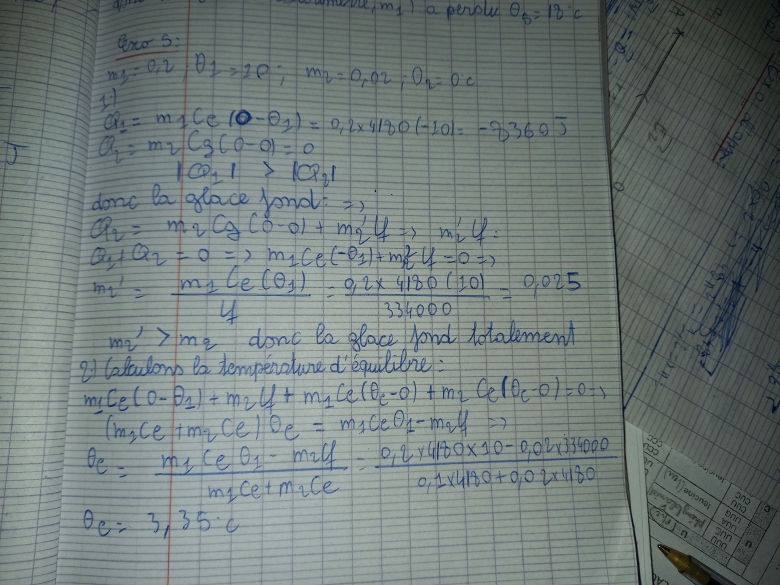 calorimètre, m1) a perdu θ3 = 18°c
Exo 5:
m1 = 0,2 ; θ1 = 10 ; m2 = 0,02 ; θ2 = 0°c
1)
Q1 = m1Ce(0-θ1) = 0,2x4180(-10) = -8360J
Q2 = m2Cg(0-0) = 0
|Q1| > |Q2|
donc la glace fond: =>
Q2 = m2Cg(0-0) + m2'Lf => m2'Lf:
Q1+Q2 = 0 => m1Ce(-θ1)+m2'Lf = 0 =>
m2' = m1Ce(θ1) / Lf = 0,2x4180(10) / 334000 = 0,025
m2' > m2 donc la glace fond totalement
2) Calculons la température d'équilibre:
m1Ce(0-θ1) + m2Lf + m1Ce(θe-0) + m2Ce(θe-0) = 0 =>
(m1Ce + m2Ce)θe = m1Ceθ1 - m2Lf =>
θe = m1Ceθ1 - m2Lf / m1Ce+m2Ce = 0,2x4180x10 - 0,02x334000 / 0,1x4180+0,02x4180
θe = 3,35°c